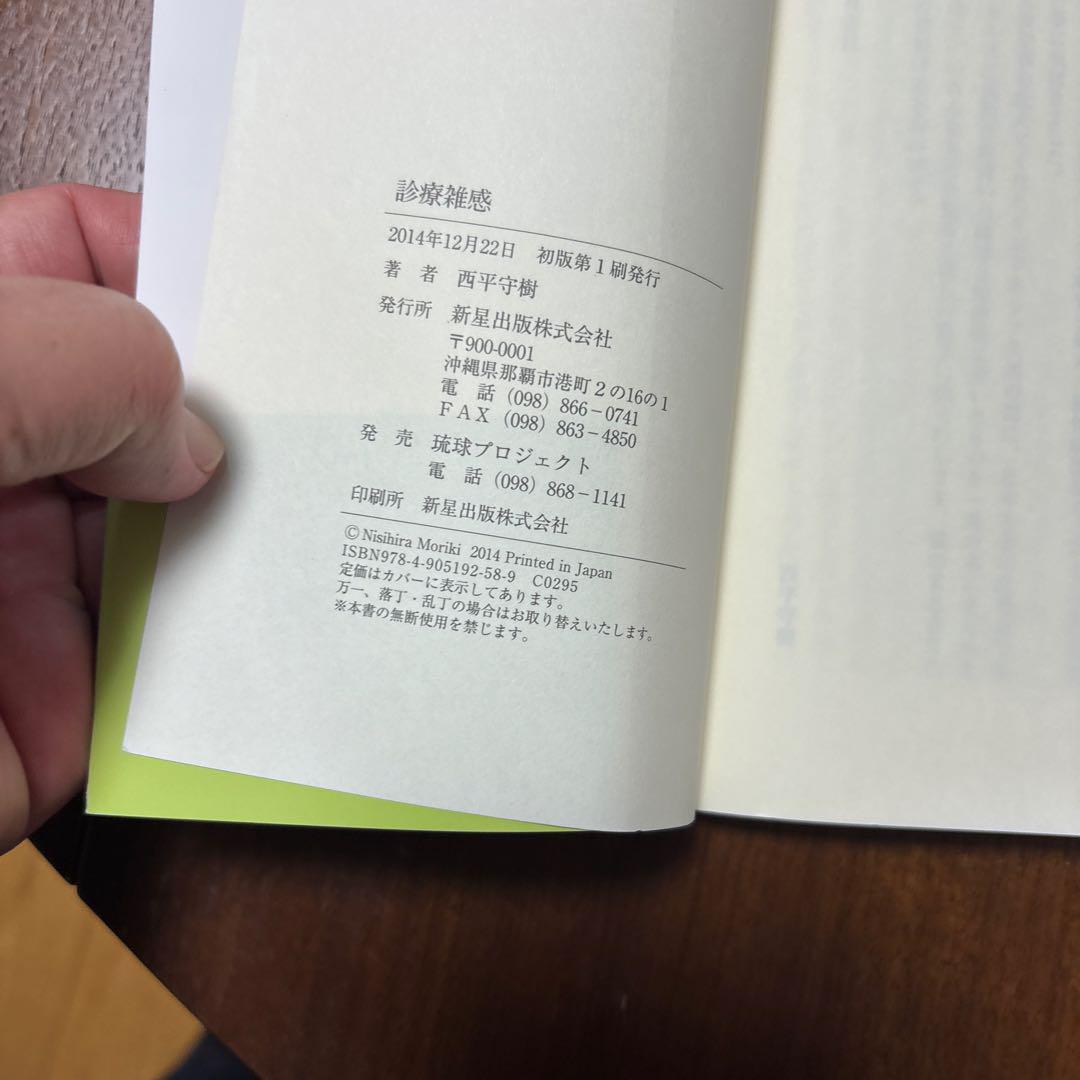 診療雑感
2014年12月22日　初版第1刷発行
著　者　西平守樹
発行所　新星出版株式会社
〒900-0001
沖縄県那覇市港町2の16の1
電　話（098）866－0741
ＦＡＸ（098）863－4850
発　売　琉球プロジェクト
電　話（098）868－1141
印刷所　新星出版株式会社
© Nisihira Moriki 2014 Printed in Japan
ISBN978-4-905192-58-9　C0295
定価はカバーに表示してあります。
万一、落丁・乱丁の場合はお取り替えいたします。
※本書の無断使用を禁じます。